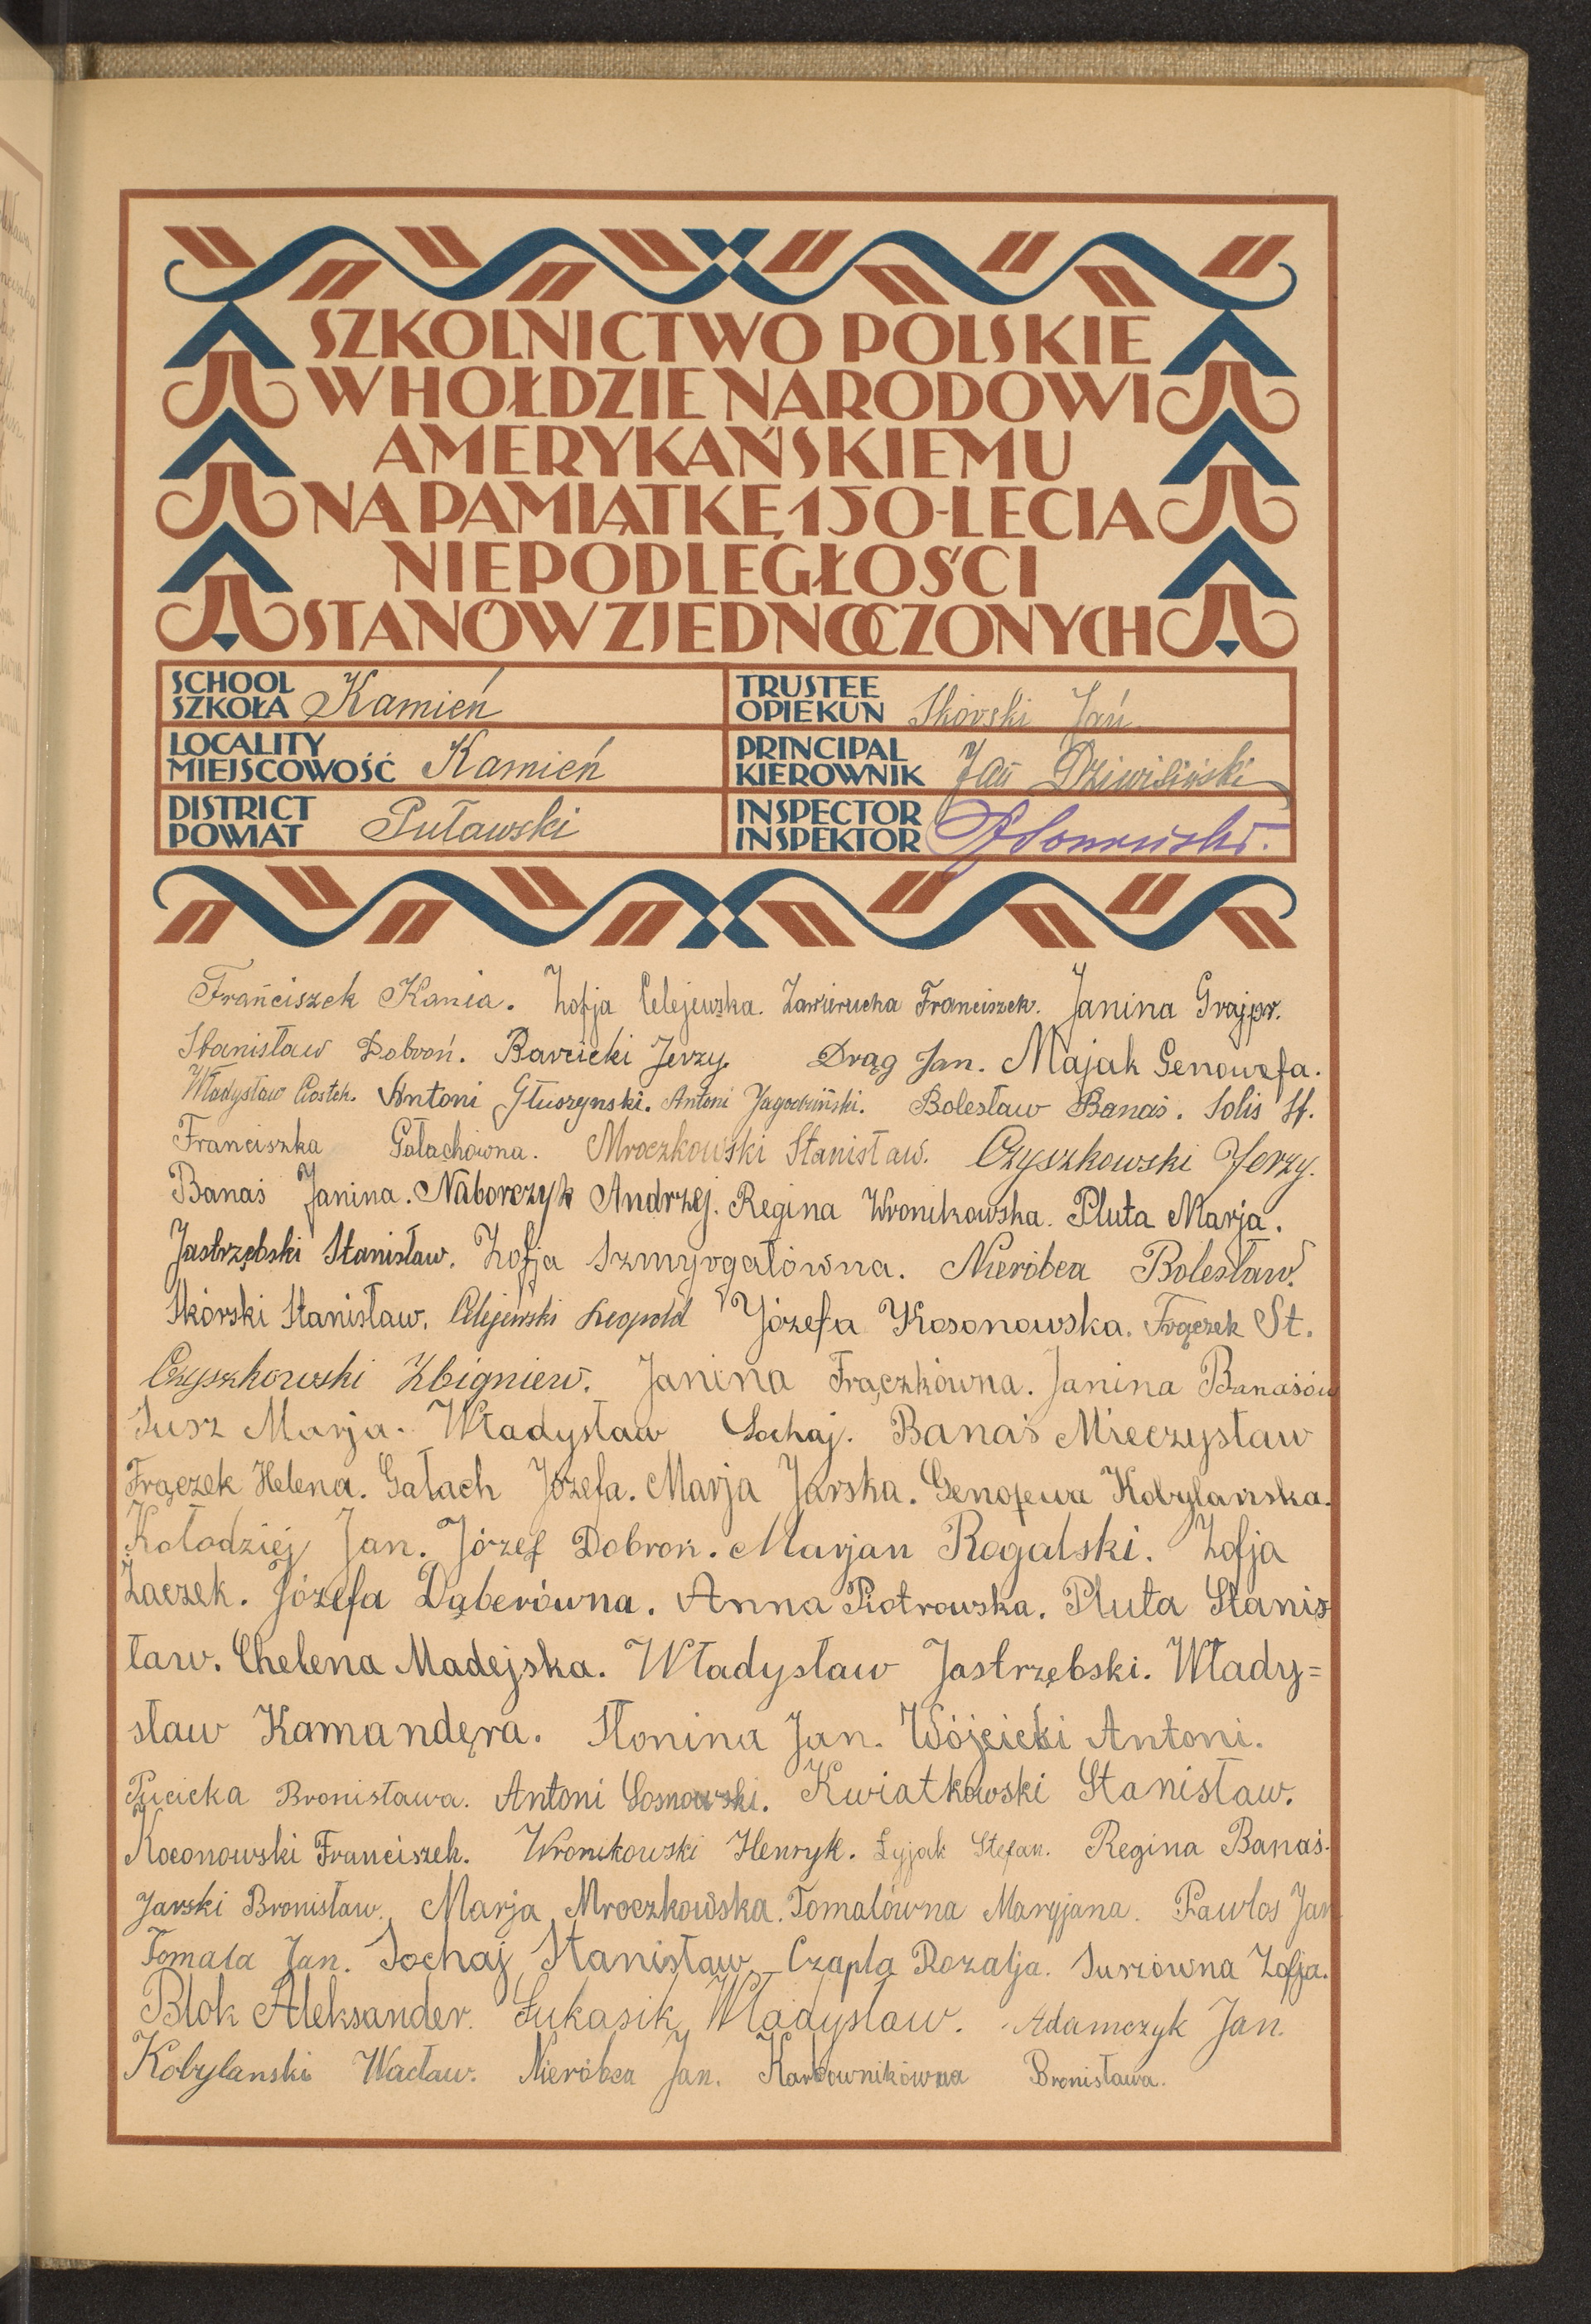 SZKOLNICTWO POLSKIE
W HOŁDZIE NARODOWI
AMERYKAŃSKIEMU
NA PAMIĄTKĘ 150-LECIA
NIEPODLEGŁOŚCI
STANÓW ZJEDNOCZONYCH
SCHOOL
SZKOŁA Kamień
TRUSTEE
OPIEKUN Skórski Jań
LOCALITY
MIEJSCOWOŚĆ Kamień
PRINCIPAL
KIEROWNIK Jan
DISTRICT
POWIAT Puławski
INSPECTOR
INSPEKTOR
Frańciszek Kania. Zofja Celejewska. Zawierucha Franciszek. Janina Grajpr.
Stanisław Dobroń. Barzicki Jerzy. Drąg Jan. Majak Genowefa.
Władysław Ciostek. Antoni Głuszynski. Antoni Jagodziński. Bolesław Banaś. Solis St.
Franciszka Gałachówna. Mroczkowski Stanisław. Czyszkowski Jerzy.
Banaś Janina. Naborczyk Andrzej. Regina Wronikowska. Pluta Marja.
Jastrzębski Stanisław. Zofja Szmyrgałówna. Nieróbca Bolesław.
Skórski Stanisław. Celejewski Leopold Józefa Kosonowska. Frączek St.
Czyszkowski Zbigniew. Janina Frączkówna. Janina Banasiów
Susz Marja. Władysław Sochaj. Banaś Mieczysław
Frączek Helena. Gałach Józefa. Marja Jarska. Genofewa Kobylańska.
Kołodziej Jan. Józef Dobroń. Marjan Rogalski. Zofja
Zaczek. Józefa Dąberówna. Anna Piotrowska. Pluta Stanis
ław. Chelena Madejska. Władysław Jastrzębski. Włady=
sław Kamandęra. Słonina Jan. Wójcicki Antoni.
Pucicka Bronisława. Antoni Sosnowski. Kwiatkowski Stanisław.
Koconowski Franciszek. Wronikowski Henryk. Łyjak Stefan. Regina Banaś.
Jarski Bronisław. Marja Mroczkowska. Tomalówna Maryjana. Pawłos Jan
Tomala Jan. Sochaj Stanisław Czapla Rozalja. Suszówna Zofja.
Blok Aleksander. Łukasik Władysław. Adamczyk Jan.
Kobylanski Wacław. Nieróbca Jan. Karbownikówna Bronisława.